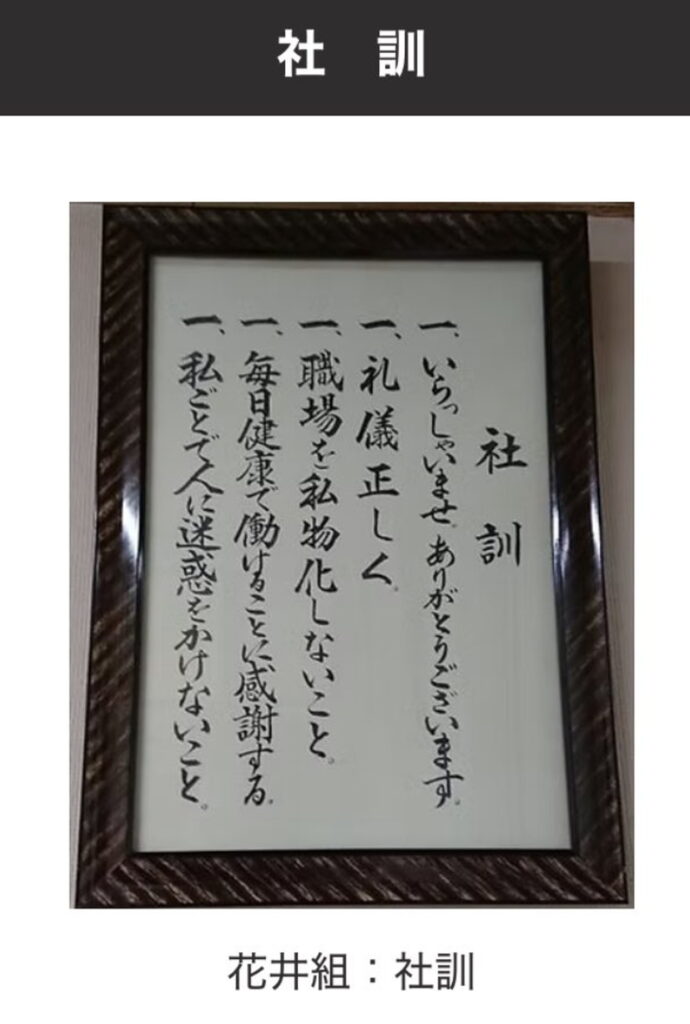 社　訓
社訓
一、いらっしゃいませ。ありがとうございます。
一、礼儀正しく。
一、職場を私物化しないこと。
一、毎日健康で働けることに感謝する。
一、私ごとで人に迷惑をかけないこと。
花井組：社訓